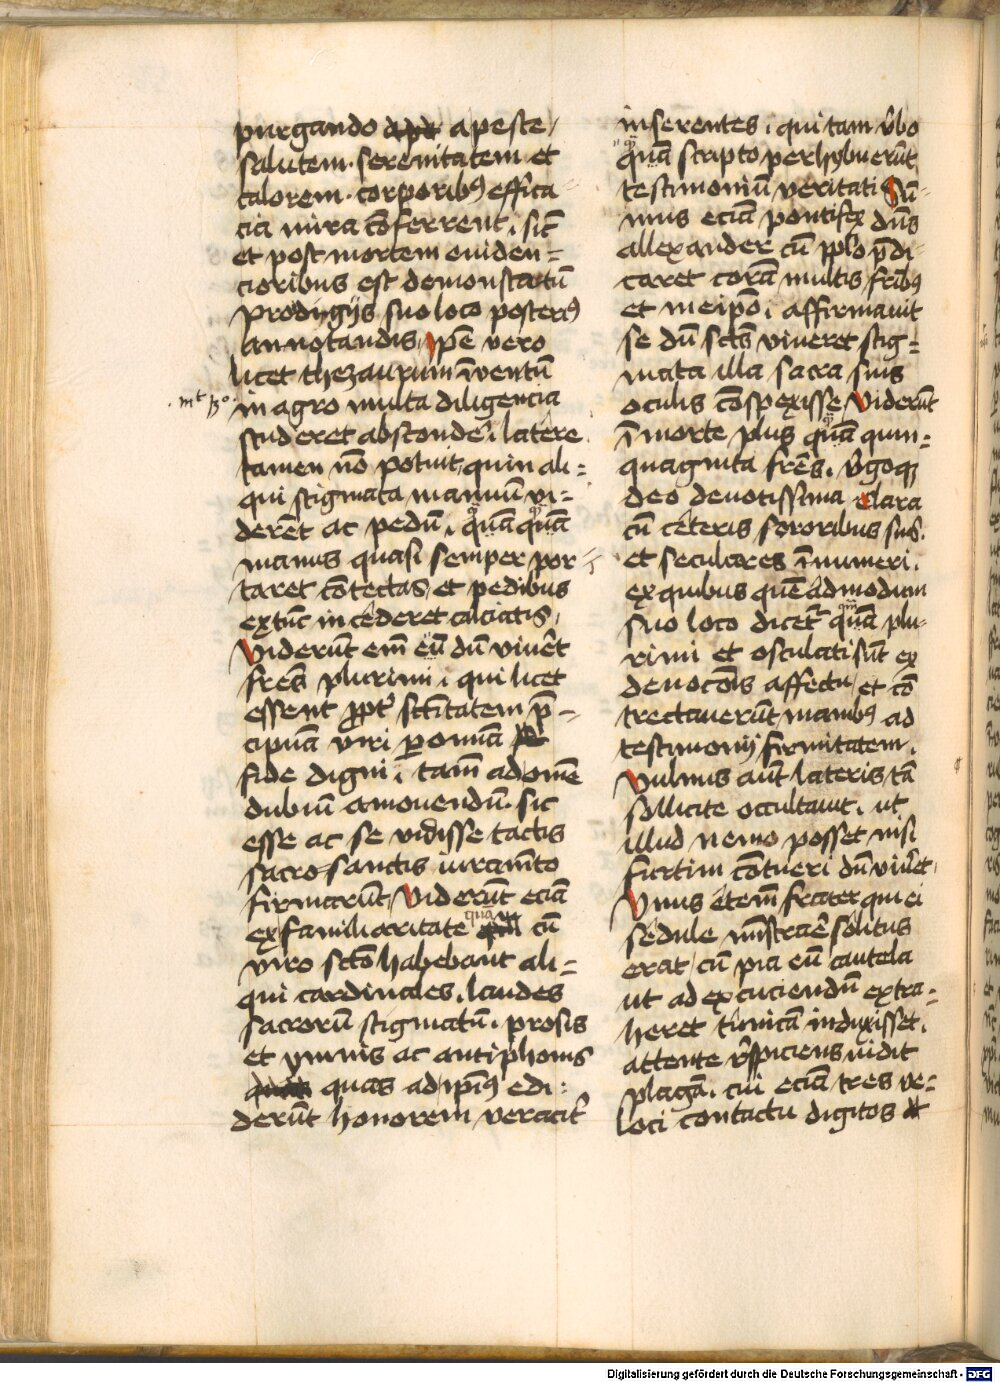 purgando a peste /
salutem · serenitatem et
calorem · corporibꝰ effica
cia mira cōferrent , sic̄
et post mortem euiden =
cioribus est demonstratū
prodigijs suo loco posterꝰ
annotandis , Ip̄e vero
licet thezaurum īnuentū
· mt 13° in agro multa diligencia
studeret abscondē , latere
tamen nō potuit , quin ali =
qui stigmata manuū vi =
derēt ac pedū , quāquā
manus quasi semper por =
taret cōtectas , et pedibus
extūc incederet calciatis ,
Viderūt em̄ eū dū viuēt
fres̄ plurimi , qui licet
essent ꝓpt̄ sctītatem p̄ =
cipuā viri ꝑ omnia
fide digni , tam̄ ad om̄e
dubiū amouendū · sic
esse ac se vidisse tactis
sacro sanctis iuramēto
firmarūt , Viderūt eciā
ex familiaritate qua cū
viro scto habebant ali =
qui cardinales , laudes
sacrorū stigmatū , prosis
et ymnis ac antiphonis
quas ad ip̄iꝰ edi :
derūt honorem veracit̄
inserentes , qui tam v̄bo
quā scripto perhybuerūt
testimoniū veritati , Su =
mus eciā pontifex dn̄s
allexander cū pplo p̄di
caret corā multis fribꝰ
et meip̄o , affirmauit
se dū sctūs viueret stig =
mata illa sacra suis
oculis cōspexisse , Viderūt
ī morte plus quā quin =
quaginta fres̄ , v̄goqꝫ
deo deuotissima clara
cū ceteris sororibus suis ,
et seculares īnumeri ,
ex quibus quēadmodum
suo loco dicet̄ quā plu =
rimi et osculati sūt ex
deuocōīs affectu , et cō
trectauerūt manibꝰ ad
testimonij firmitatem ,
Vulnus aūt lateris tā
sollicite occultauit , ut
illud nemo posset nisi
furtim cōtueri dū viuēt ,
Vnus etem̄ frater qui ei
sedule mīstraē solitus
erat , cū pia eū cautela
ut ad excuciendū extra =
heret tunicā induxisset ,
attente r̄spiciens uidit
plagā , cui eciā tres ve =
loci contactu digitos
Digitalisierung gefördert durch die Deutsche Forschungsgemeinschaft - DFG